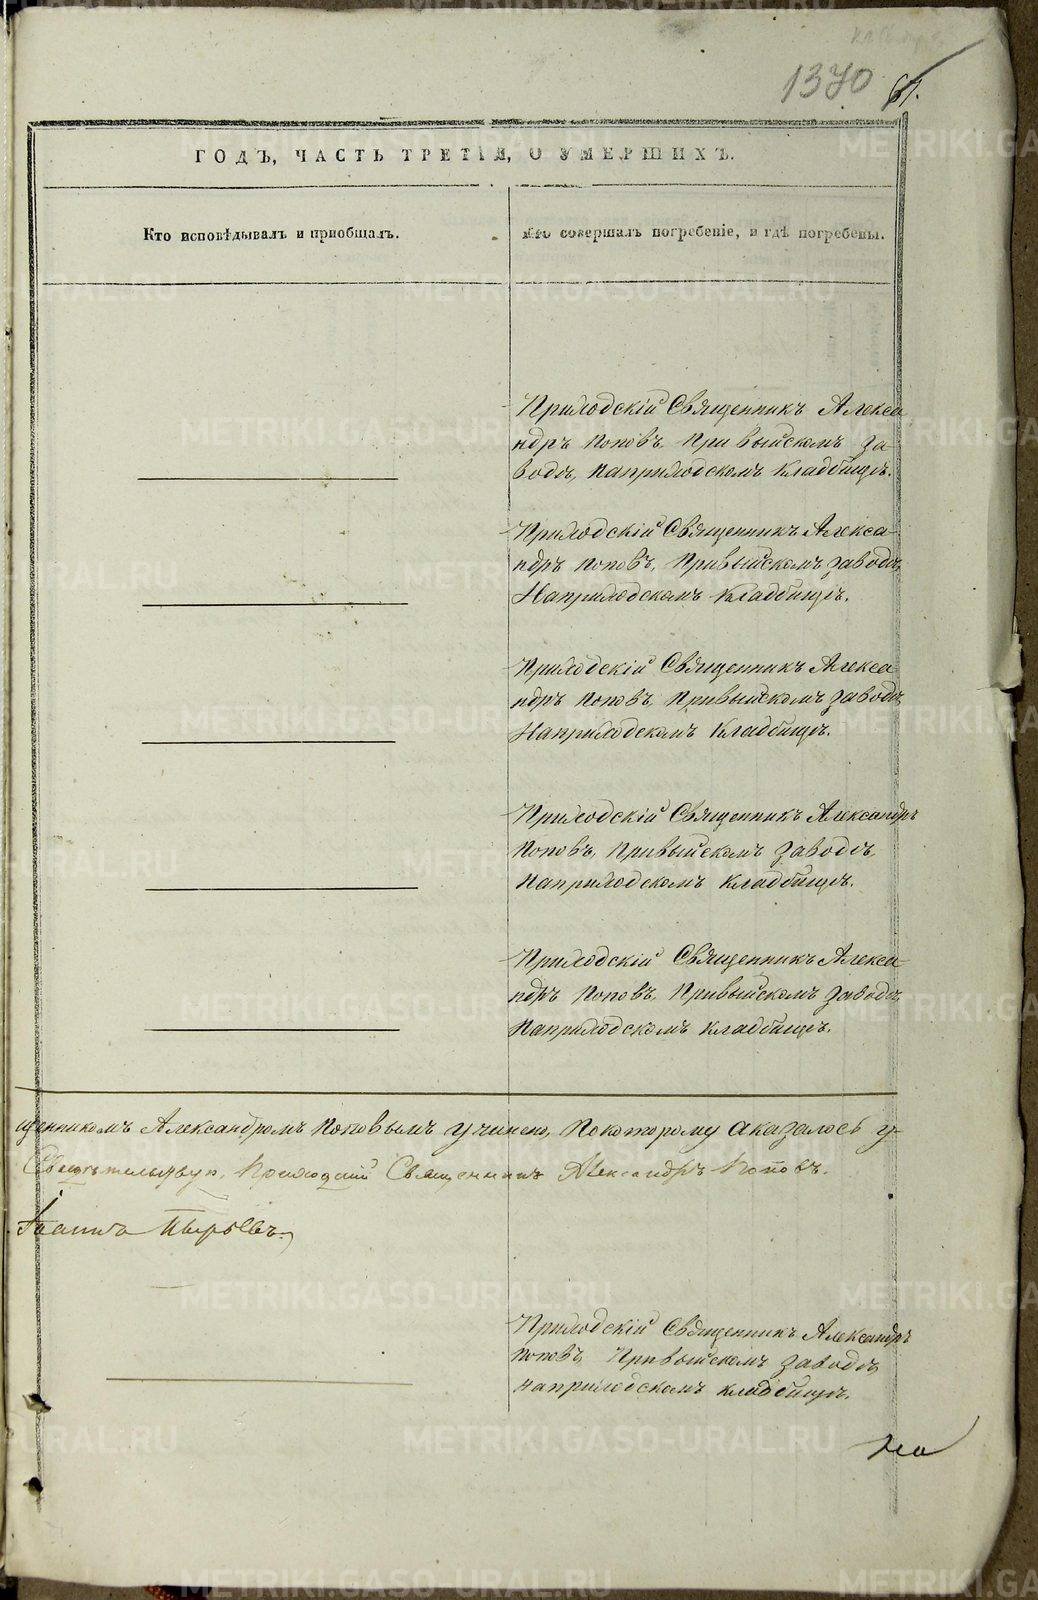 1370 61.
ГОДЪ, ЧАСТЬ ТРЕТІЯ, О УМЕРШИХЪ.
Кто исповѣдывалъ и пріобщалъ.
Кто совершалъ погребеніе, и гдѣ погребены.
Приходскій Священникъ Алекса
ндръ Поповъ, При выйскомъ за
водѣ, наприходскомъ кладбищѣ.
Приходскій Священникъ Алекса-
ндръ Поповъ, Привыйскомъ заводѣ,
Наприходскомъ кладбищѣ.
Приходскій Священникъ Алекса
ндръ Поповъ, Привыйскомъ заводѣ,
Наприходскомъ кладбищѣ.
Приходскій Священникъ Александръ
Поповъ, Привыйскомъ заводѣ,
наприходскомъ кладбищѣ.
Приходскій Священникъ Алекса-
ндръ Поповъ, Привыйскомъ заводѣ,
наприходскомъ кладбищѣ.
щенникомъ Александромъ Поповымъ учинено, Покоторому аказалось у-
Свидѣтельствую, Приходскій Священникъ Александръ Поповъ.
Іоаннъ Пырьевъ.
Приходскій Священникъ Александръ
Поповъ, Привыйскомъ заводѣ,
наприходскомъ кладбищѣ.
METRIKI.GASO-URAL.RU